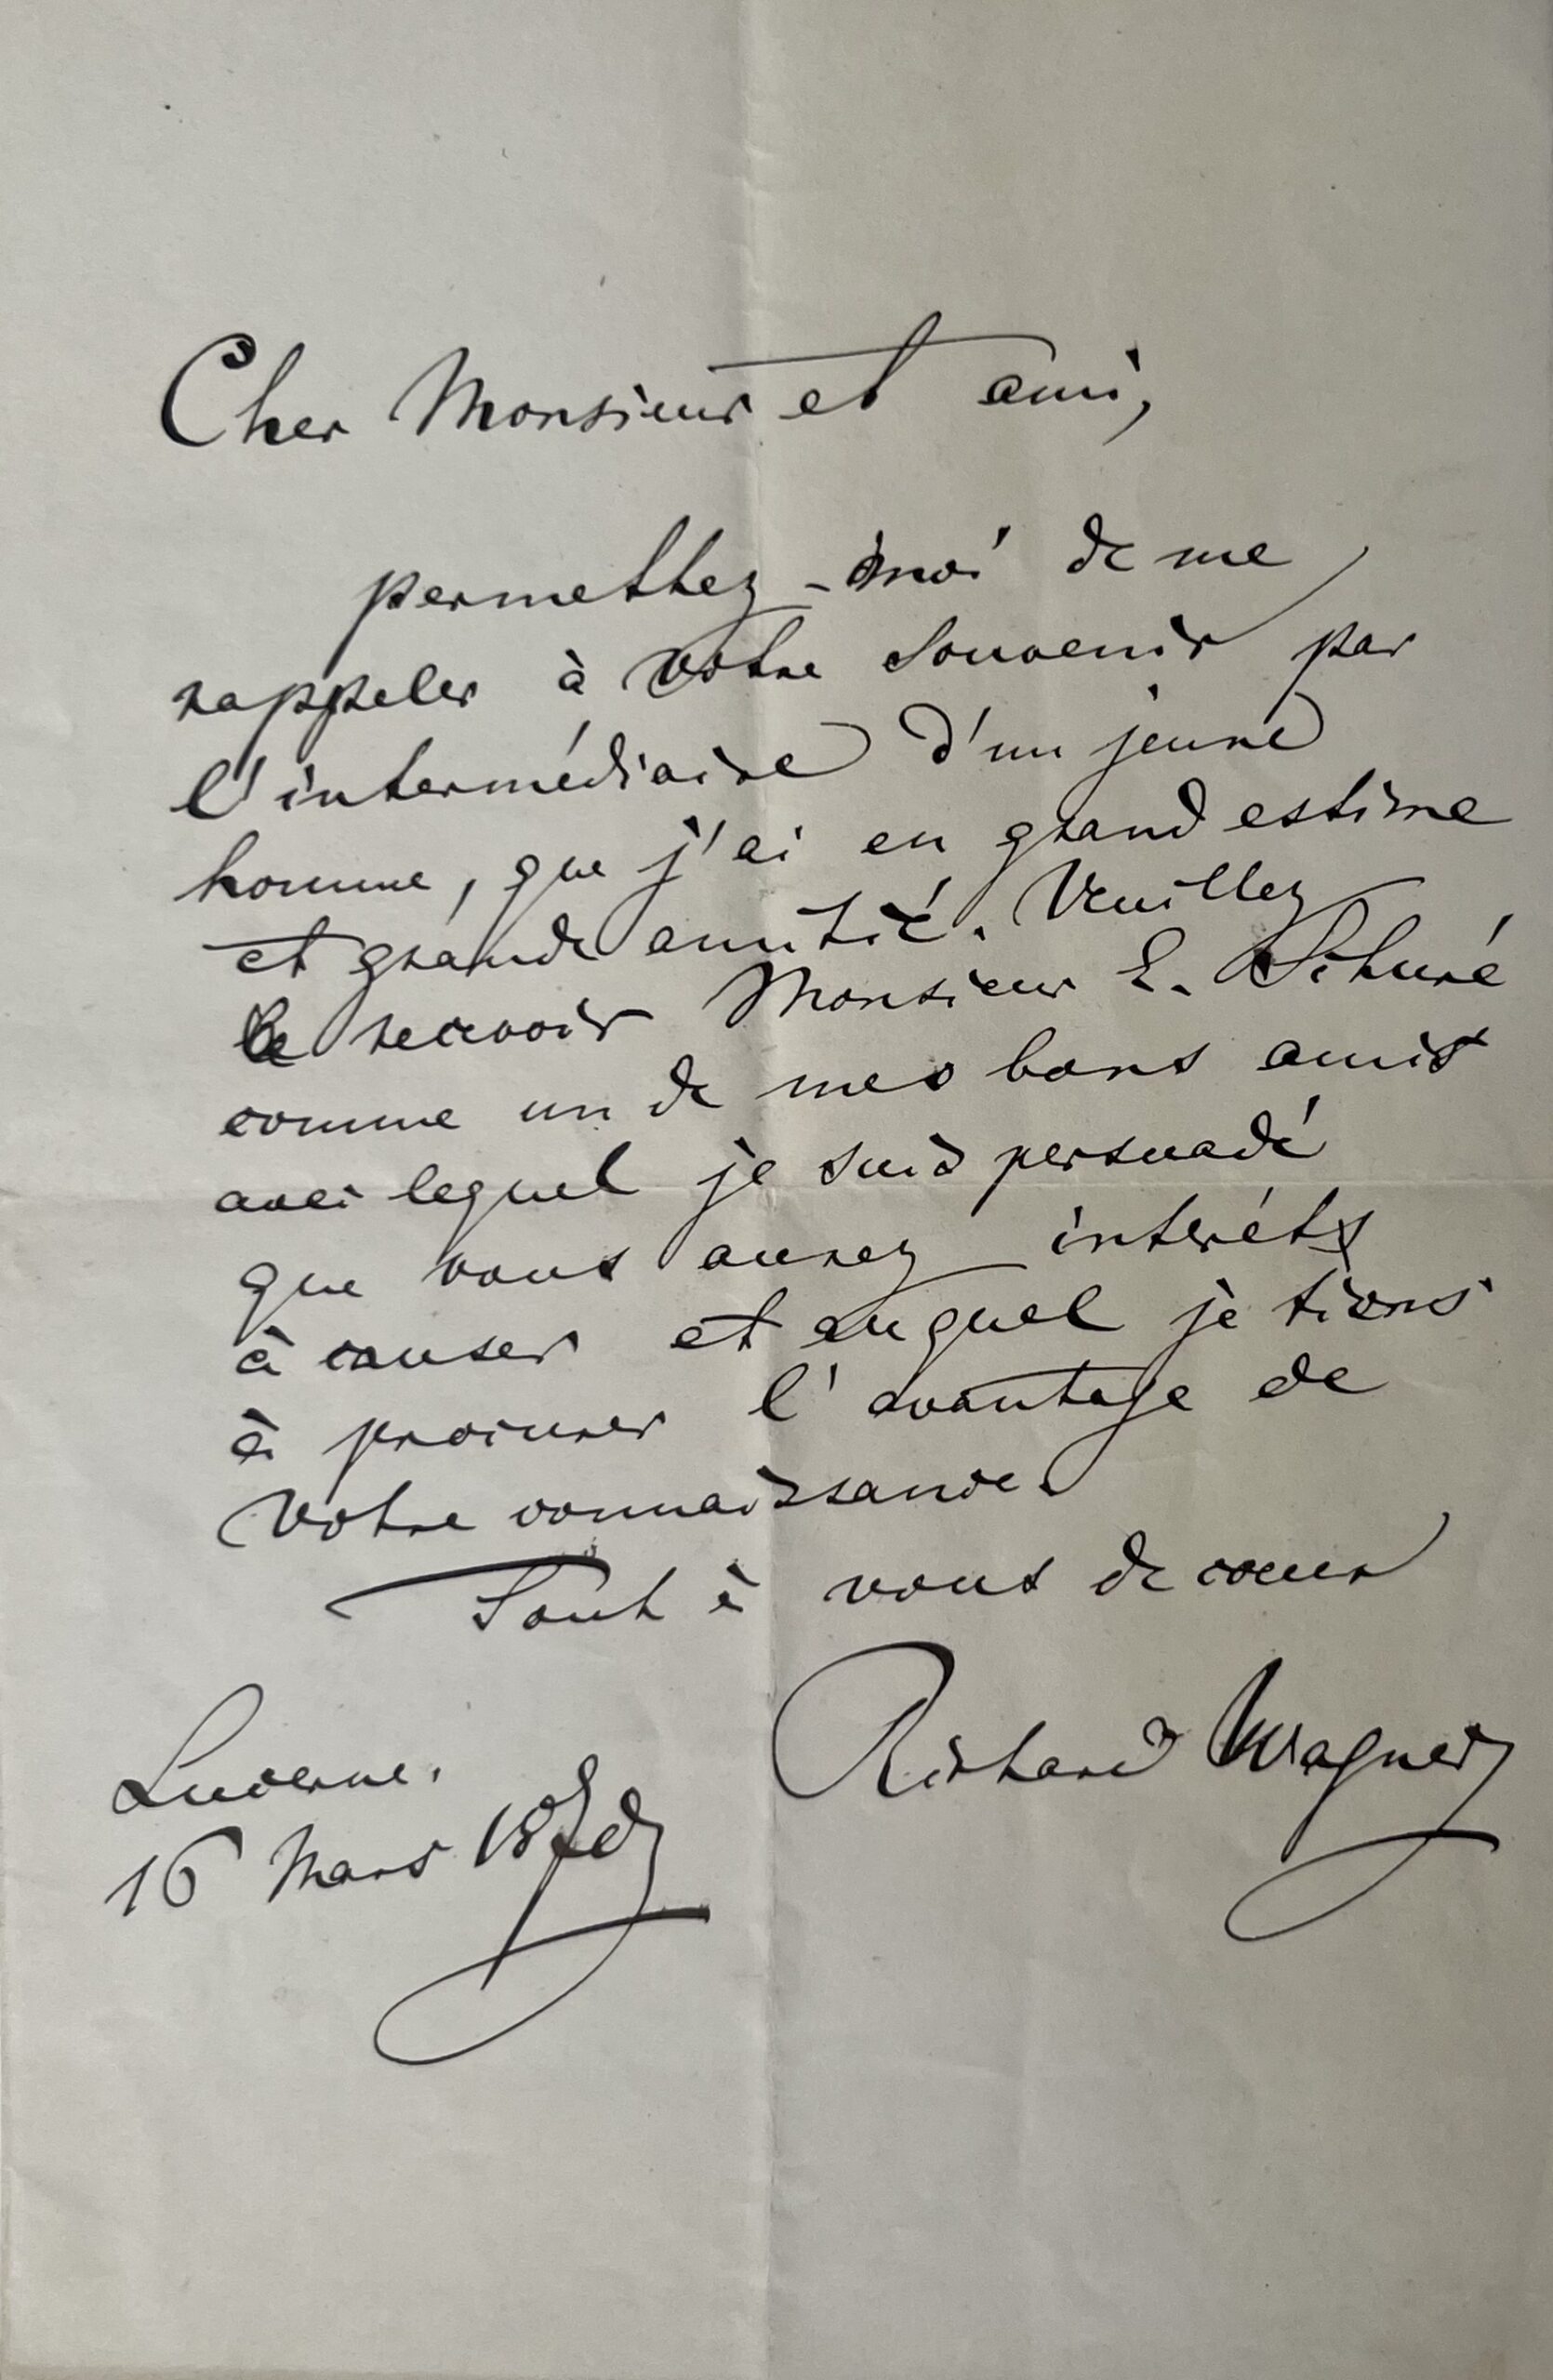 Cher Monsieur et ami,
permettez-moi de me
rappeler à votre souvenir par
l'intermédiaire d'un jeune
homme, que j'ai en grand estime
et grande amitié. Veuillez
recevoir Monsieur E. Schuré
comme un de mes bons amis
avec lequel je suis persuadé
que vous aurez intérêt
à causer et auquel je tiens
à procurer l'avantage de
votre connaissance.
Tout à vous de cœur
Richard Wagner
Lucerne.
16 Mars